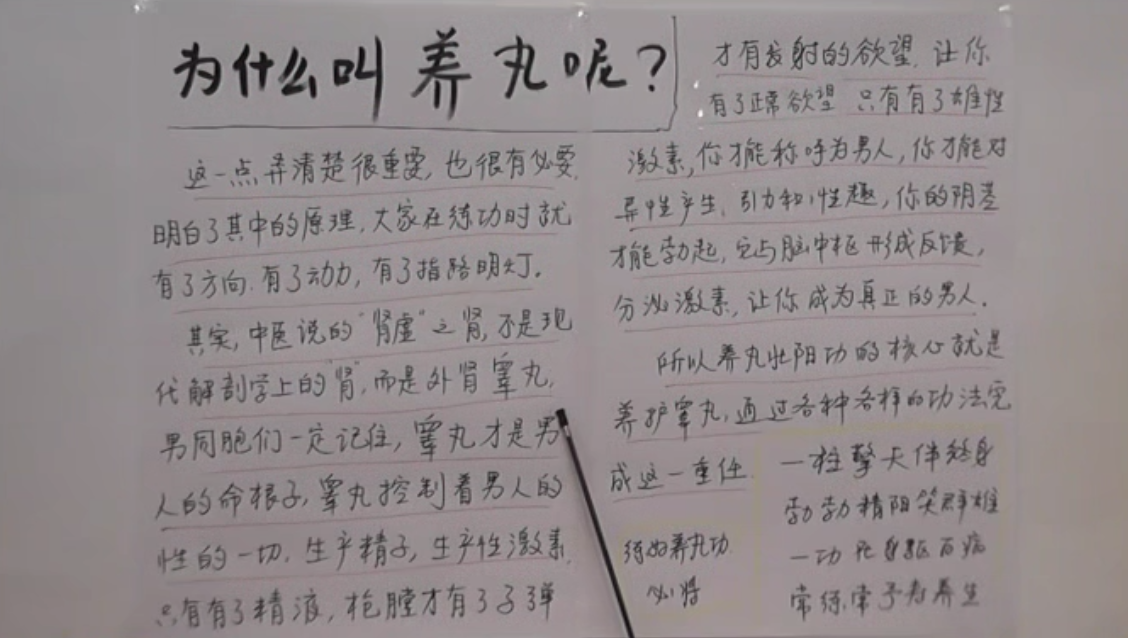 为什么叫养丸呢?
这一点弄清楚很重要,也很有必要,
明白了其中的原理,大家在练功时就
有了方向.有了动力,有了指路明灯.
其实,中医说的“肾虚”之肾,不是现
代解剖学上的“肾”,而是外肾睾丸,
男同胞们一定记住,睾丸才是男
人的命根子,睾丸控制着男人的
性的一切.生产精子,生产性激素.
只有有了精液,枪膛才有了子弹
才有发射的欲望.让你
有了正常欲望 只有有了雄性
激素,你才能称呼为男人,你才能对
异性产生.引力和性趣,你的阴茎
才能勃起,它与脑中枢形成反馈,
分泌激素,让你成为真正的男人.
所以养丸壮阳功的核心就是
养护睾丸,通过各种各样的功法完
成这一重任.
练好养丸功
必将
一柱擎天伴终身
勃勃精阳笑群雄
一功 身躯百病
常练常予 养生